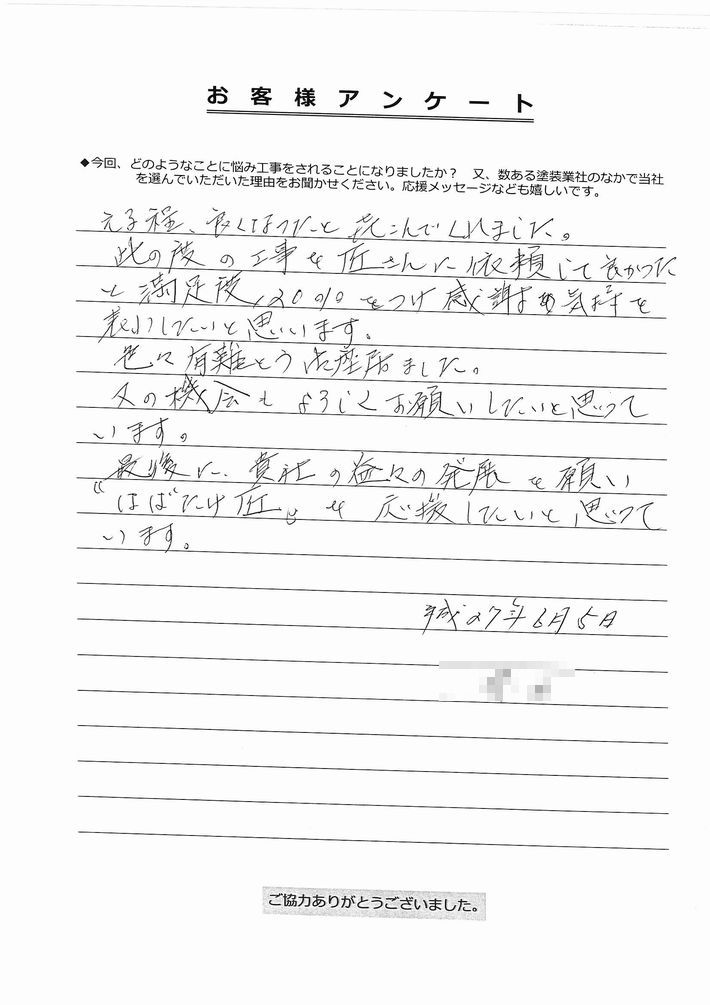 お客様アンケート
◆今回、どのようなことに悩み工事をされることになりましたか？　又、数ある塗装業社のなかで当社
を選んでいただいた理由をお聞かせください。応援メッセージなども嬉しいです。
える程、良くなったと喜こんでくれました。
此の度の工事を匠さんに依頼して良かった
と満足度120%をつけ感謝の気持を
表わしたいと思います。
色々有難とう御座居ました。
又の機会もよろしくお願いしたいと思って
います。
最後に、貴社の益々の発展を願い
"はばたけ匠"を応援したいと思って
います。
平成27年6月5日
ご協力ありがとうございました。